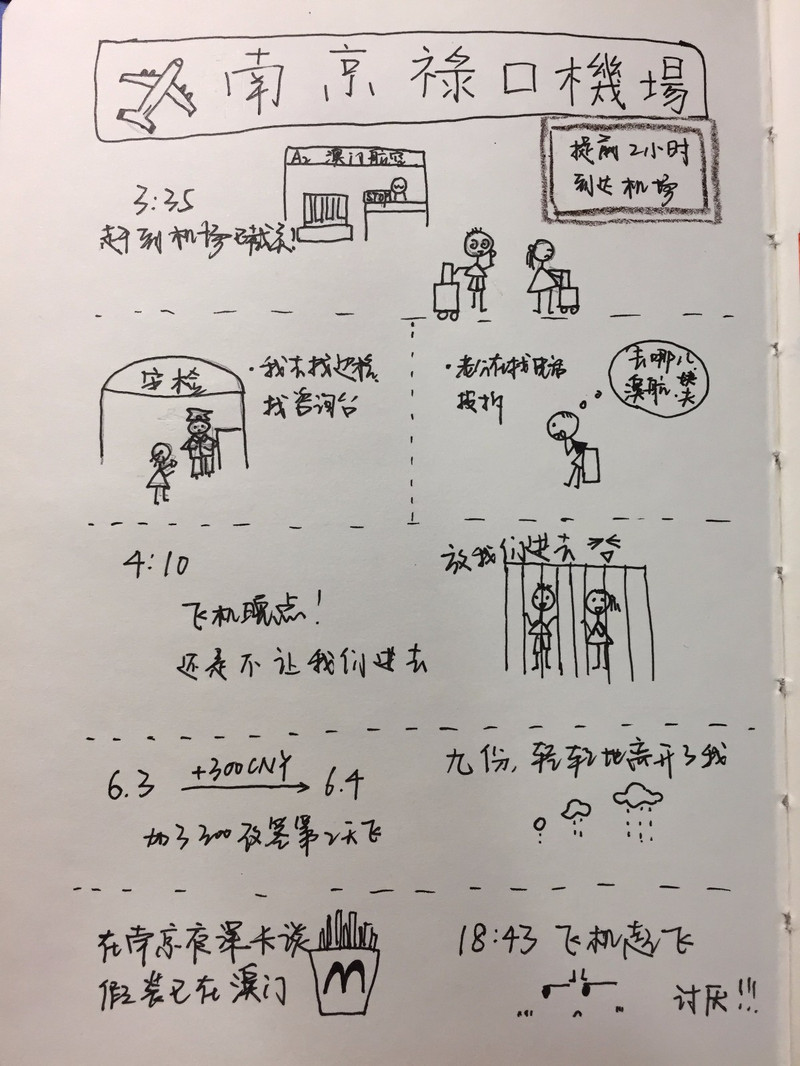 南京禄口機場
提前2小时
到达机场
A2 澳门航空
STOP
3:35
赶到机场已截关!
安检
·我去找边检
找咨询台
·老公在找电话
投折
去哪儿
澳航
4:10
飞机晚点!
还是不让我们进去
放我们进去
6.3 +300CNY 6.4
加了300改签第2天飞
九份,轻轻地离开了我
在南京夜深卡谈
假装已在澳门
18:43 飞机起飞
讨厌!!!